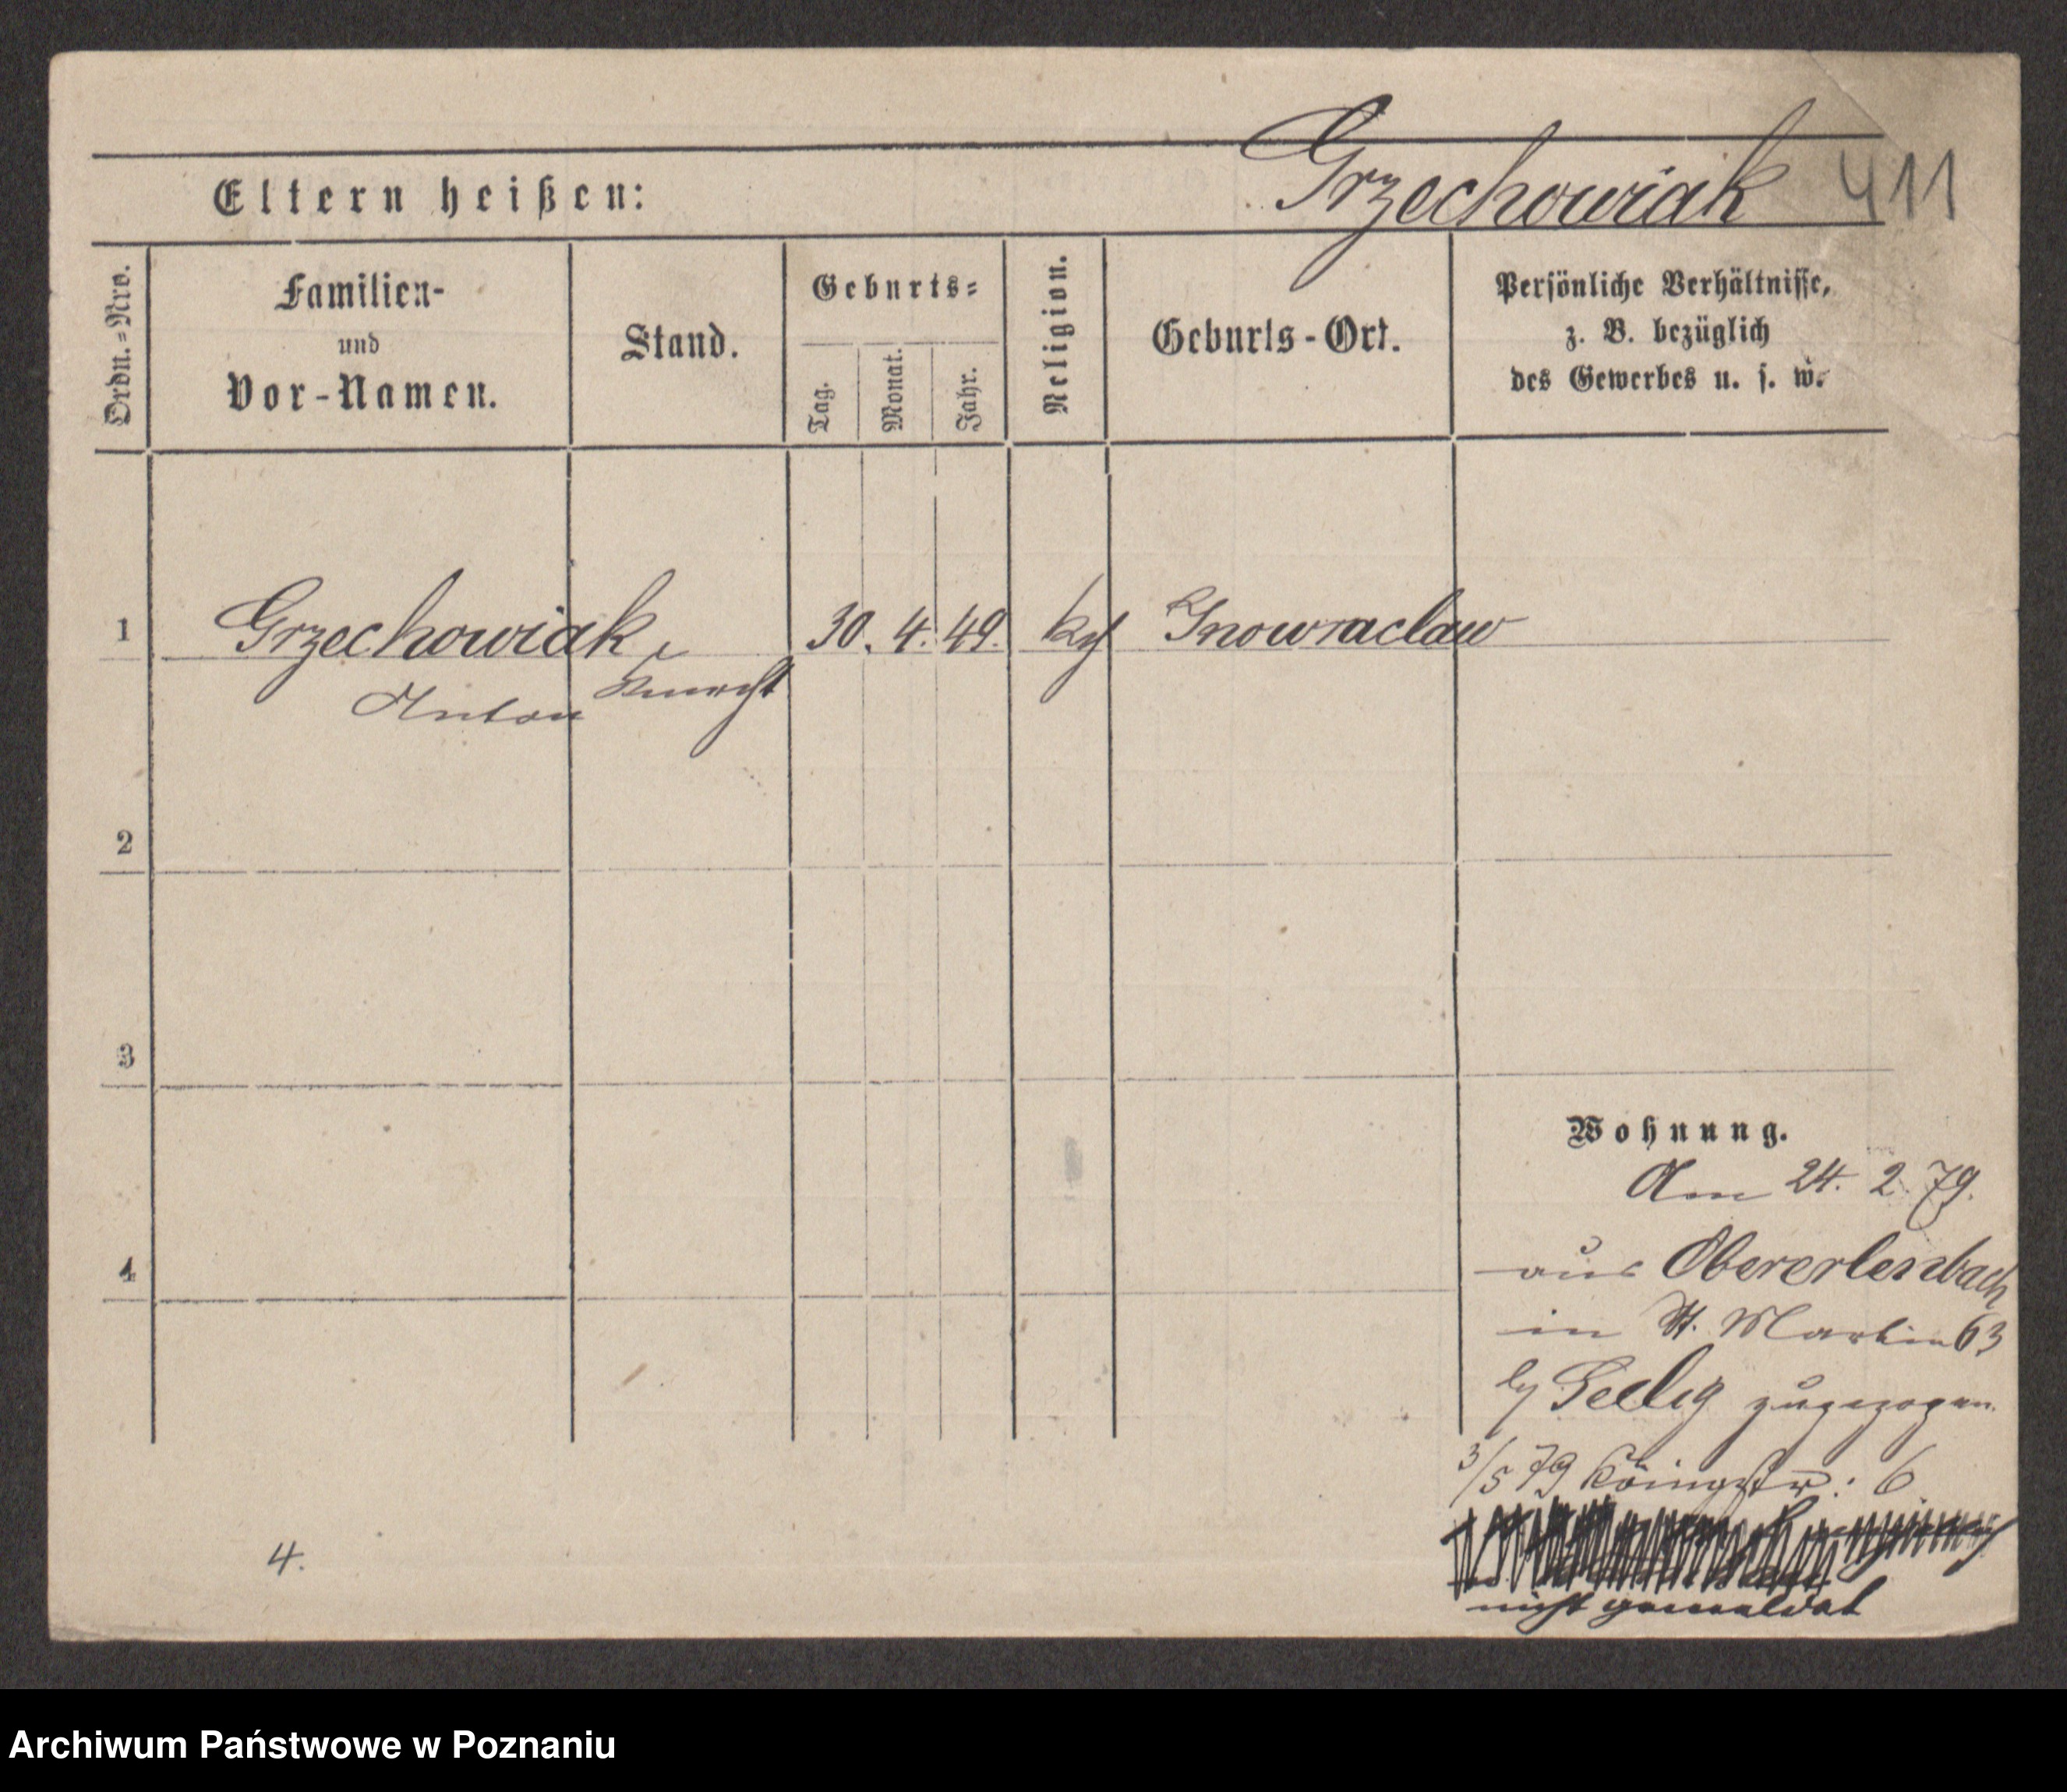 Grzechowiak 411
Eltern heißen:
Ordn.=Nro.
Familien-
und
Vor-Namen.
Stand.
Geburts=
Tag.
Monat.
Jahr.
Religion.
Geburts-Ort.
Persönliche Verhältnisse,
z. B. bezüglich
des Gewerbes u. s. w.
1 Grzechowiak 30. 4. 49. kath Inowraclaw
Anton Knecht
2
3
4
Wohnung.
Am 24. 2. 79.
aus Obererlenbach
in St. Martin 63
b/ Seelig zugezogen.
3/5 79 Königstr: 6
nicht gemeldet
4.
Archiwum Państwowe w Poznaniu